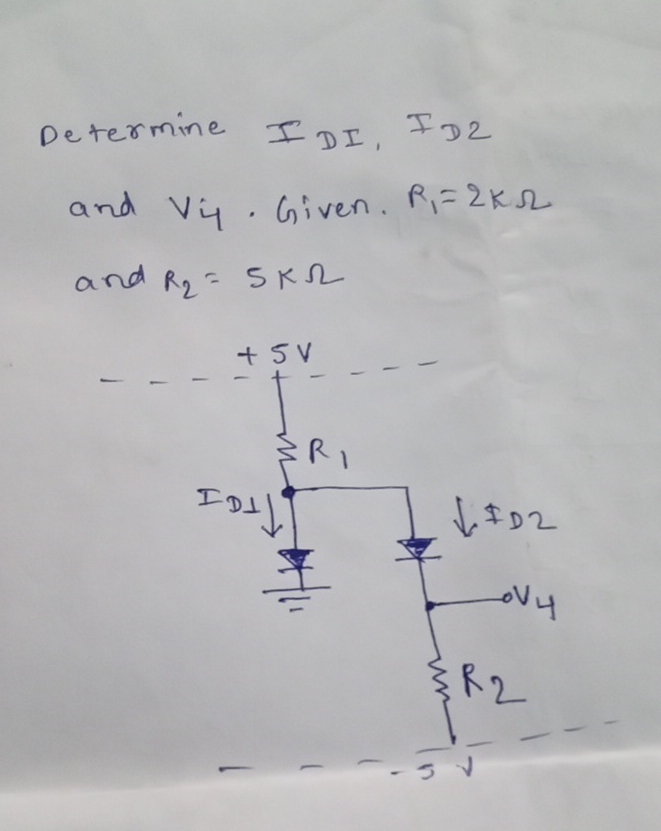 Determine I DI, I D2
and V4 . Given. R1 = 2KΩ
and R2 = 5KΩ
+ 5 V
R1
I D1
I D2
V4
R2
- 5 V